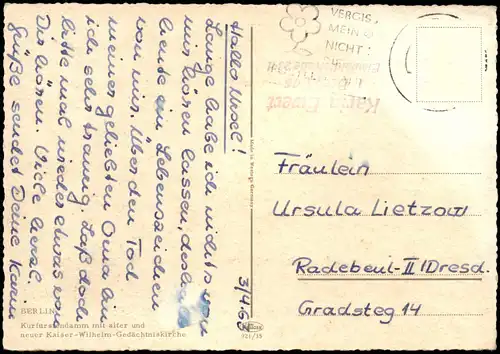 Hallo Ursel!
Lange habe ich nichts von
mir hören lassen, deshalb
heute ein Lebenszeichen
von mir. Über den Tod
meiner geliebten Oma bin
ich sehr traurig. Laß doch
bitte mal wieder etwas von
Dir hören. Viele liebe
Grüße sendet Deine Karin
3/4.65
VERGIS,
MEIN
NICHT:
Karin Ewert
Fräulein
Ursula Lietzow
Radebeul-II /Dresd.
Gradsteg 14
BERLIN
Kurfürstendamm mit alter und
neuer Kaiser-Wilhelm-Gedächtniskirche
121/35